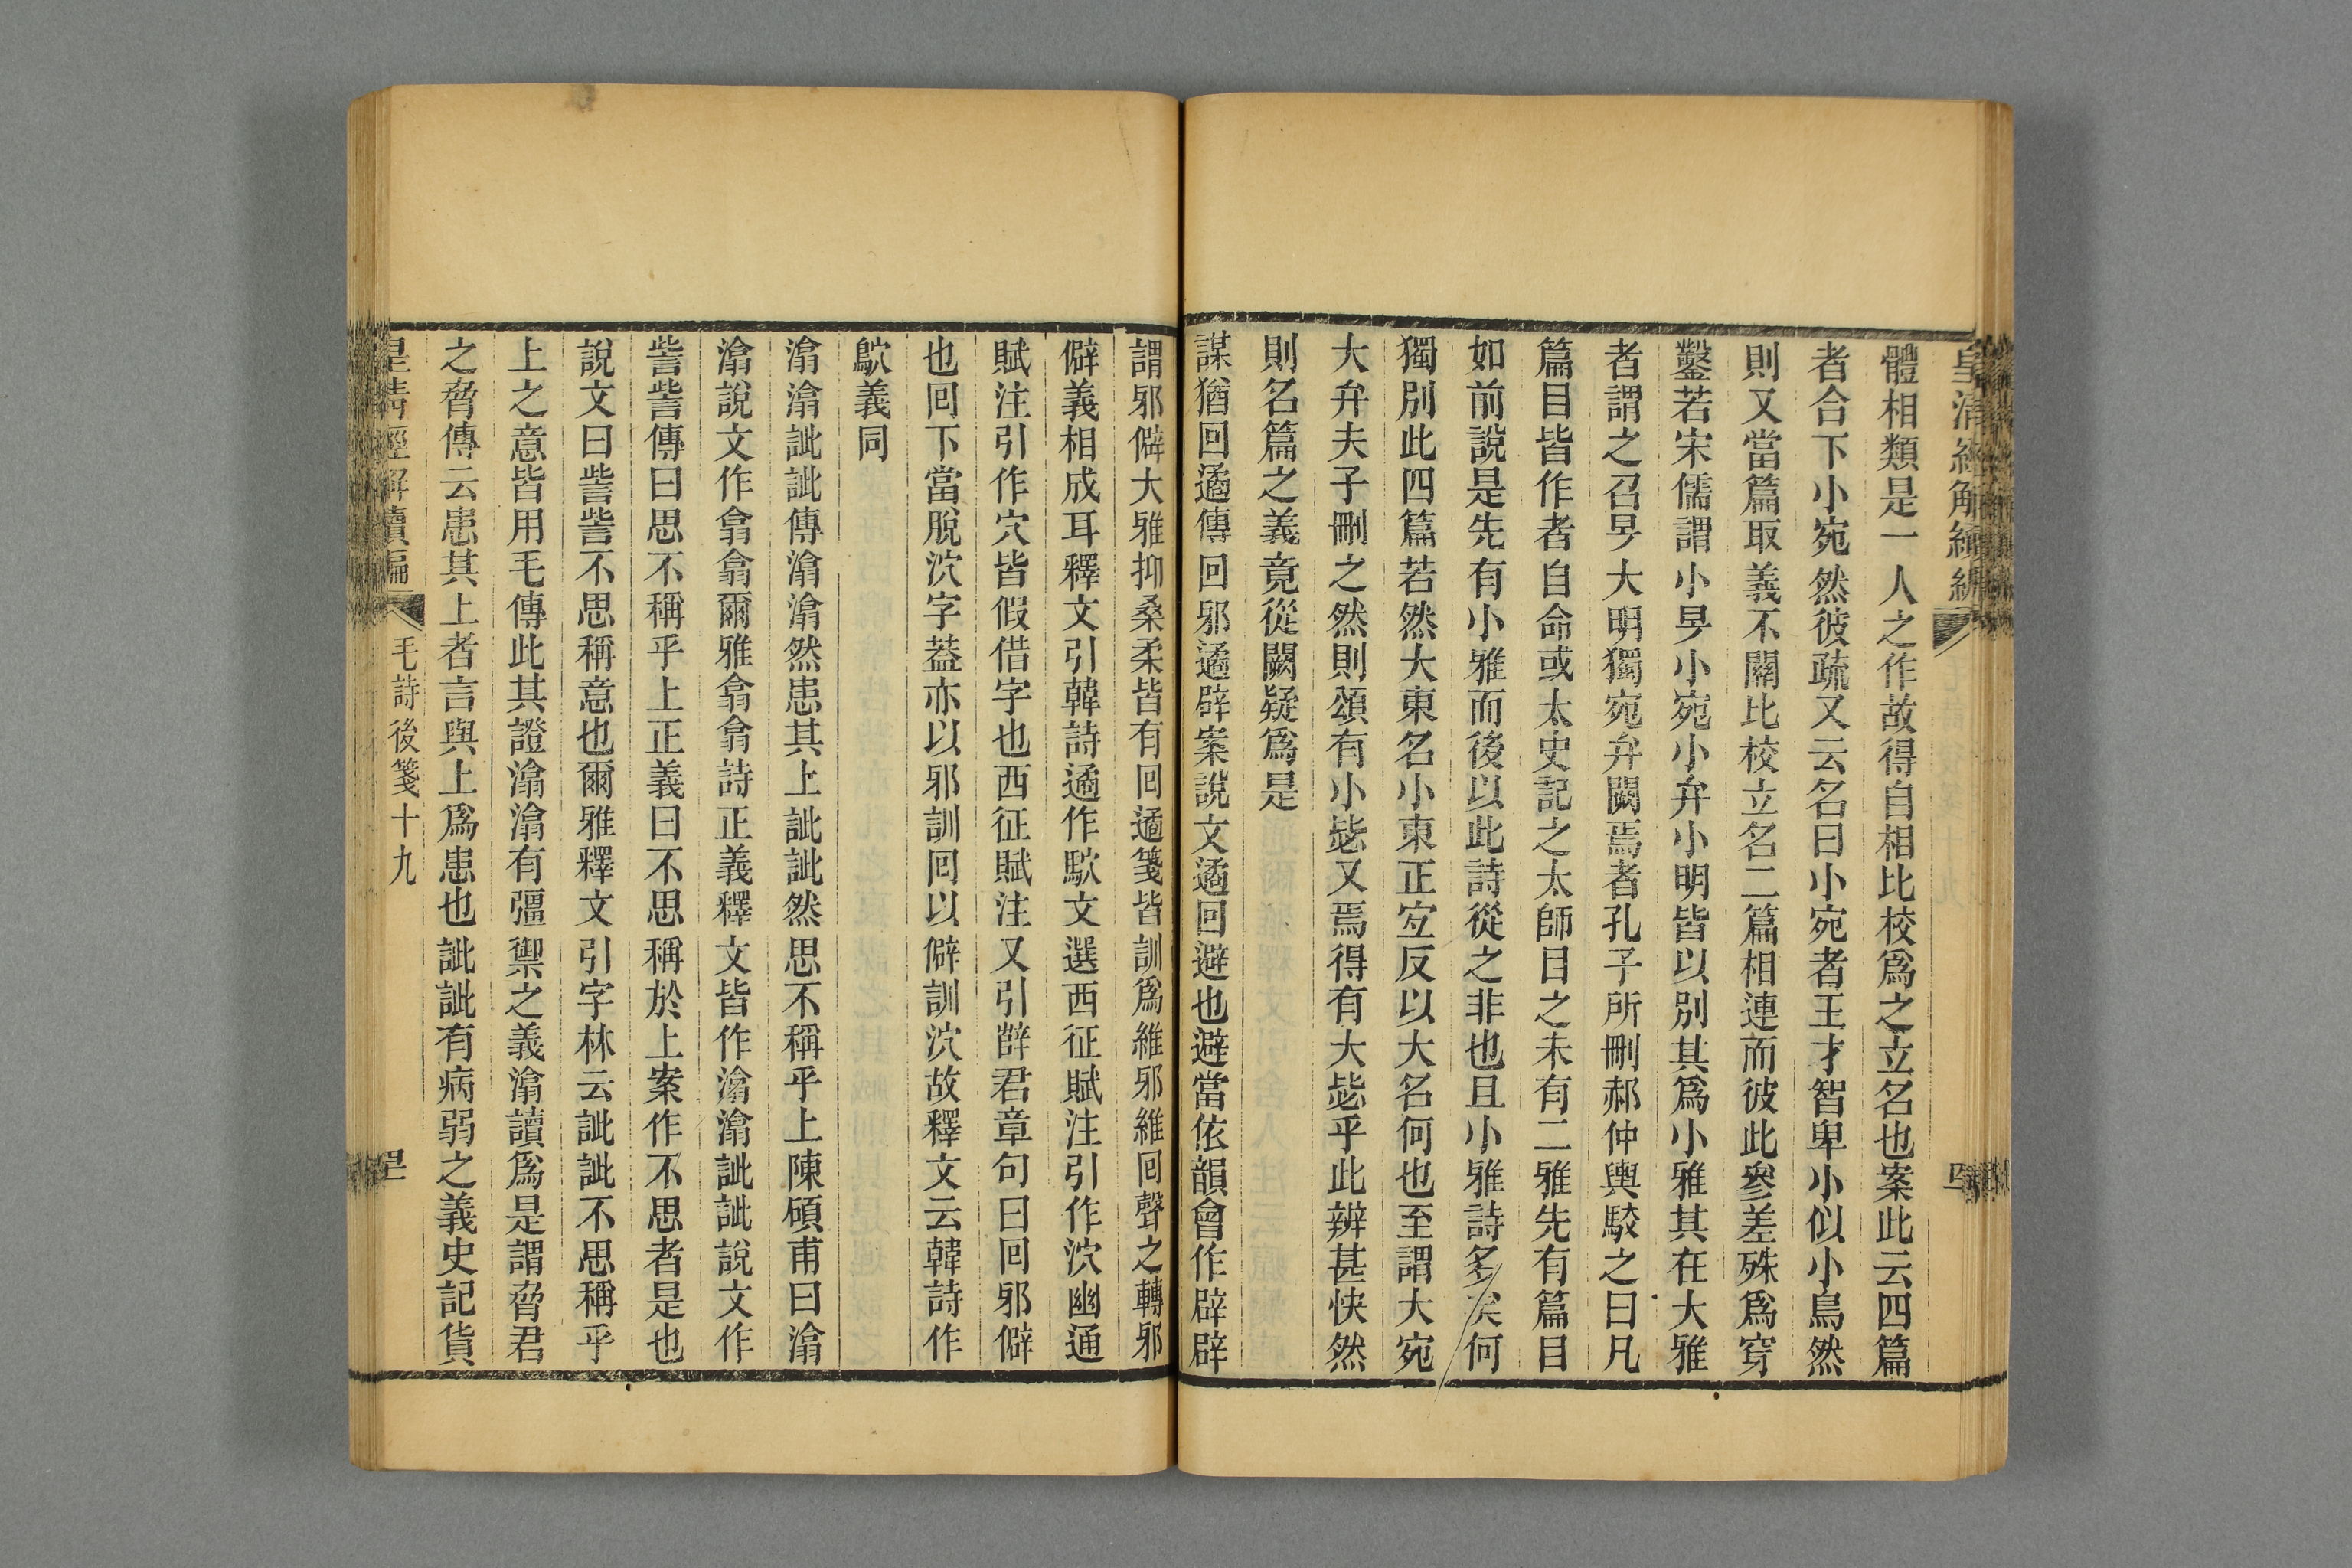 皇清經解續編
體相類是一人之作故得自相比校爲之立名也案此云四篇
者合下小宛然彼疏又云名曰小宛者王才智卑小似小鳥然
則又當篇取義不關比校立名二篇相連而彼此參差殊爲穿
鑿若宋儒謂小旻小宛小弁小明皆以別其爲小雅其在大雅
者謂之召旻大明獨宛弁闕焉者孔子所刪郝仲輿駮之曰凡
篇目皆作者自命或太史記之太師目之未有二雅先有篇目
如前說是先有小雅而後以此詩從之非也且小雅詩多矣何
獨別此四篇若然大東名小東正宜反以大名何也至謂大宛
大弁夫子刪之然則頌有小毖又焉得有大毖乎此辨甚快然
則名篇之義竟從闕疑爲是
謀猶回遹傳回邪遹辟案說文遹回避也避當依韻會作辟辟
謂邪僻大雅抑桑柔皆有回遹箋皆訓爲維邪維回聲之轉邪
僻義相成耳釋文引韓詩遹作鴥文選西征賦注引作泬幽通
賦注引作穴皆假借字也西征賦注又引薛君章句曰回邪僻
也回下當脫泬字葢亦以邪訓回以僻訓泬故釋文云韓詩作
鴥義同
潝潝訿訿傳潝潝然患其上訿訿然思不稱乎上陳碩甫曰潝
潝說文作翕翕爾雅翕翕詩正義釋文皆作潝潝訿訿說文作
呰呰傳曰思不稱乎上正義曰不思稱於上案作不思者是也
說文曰呰呰不思稱意也爾雅釋文引字林云訿訿不思稱乎
上之意皆用毛傳此其證潝潝有彊禦之義潝讀爲是謂脅君
之脅傳云患其上者言與上爲患也訿訿有病弱之義史記貨
皇清經解續編 毛詩後箋十九